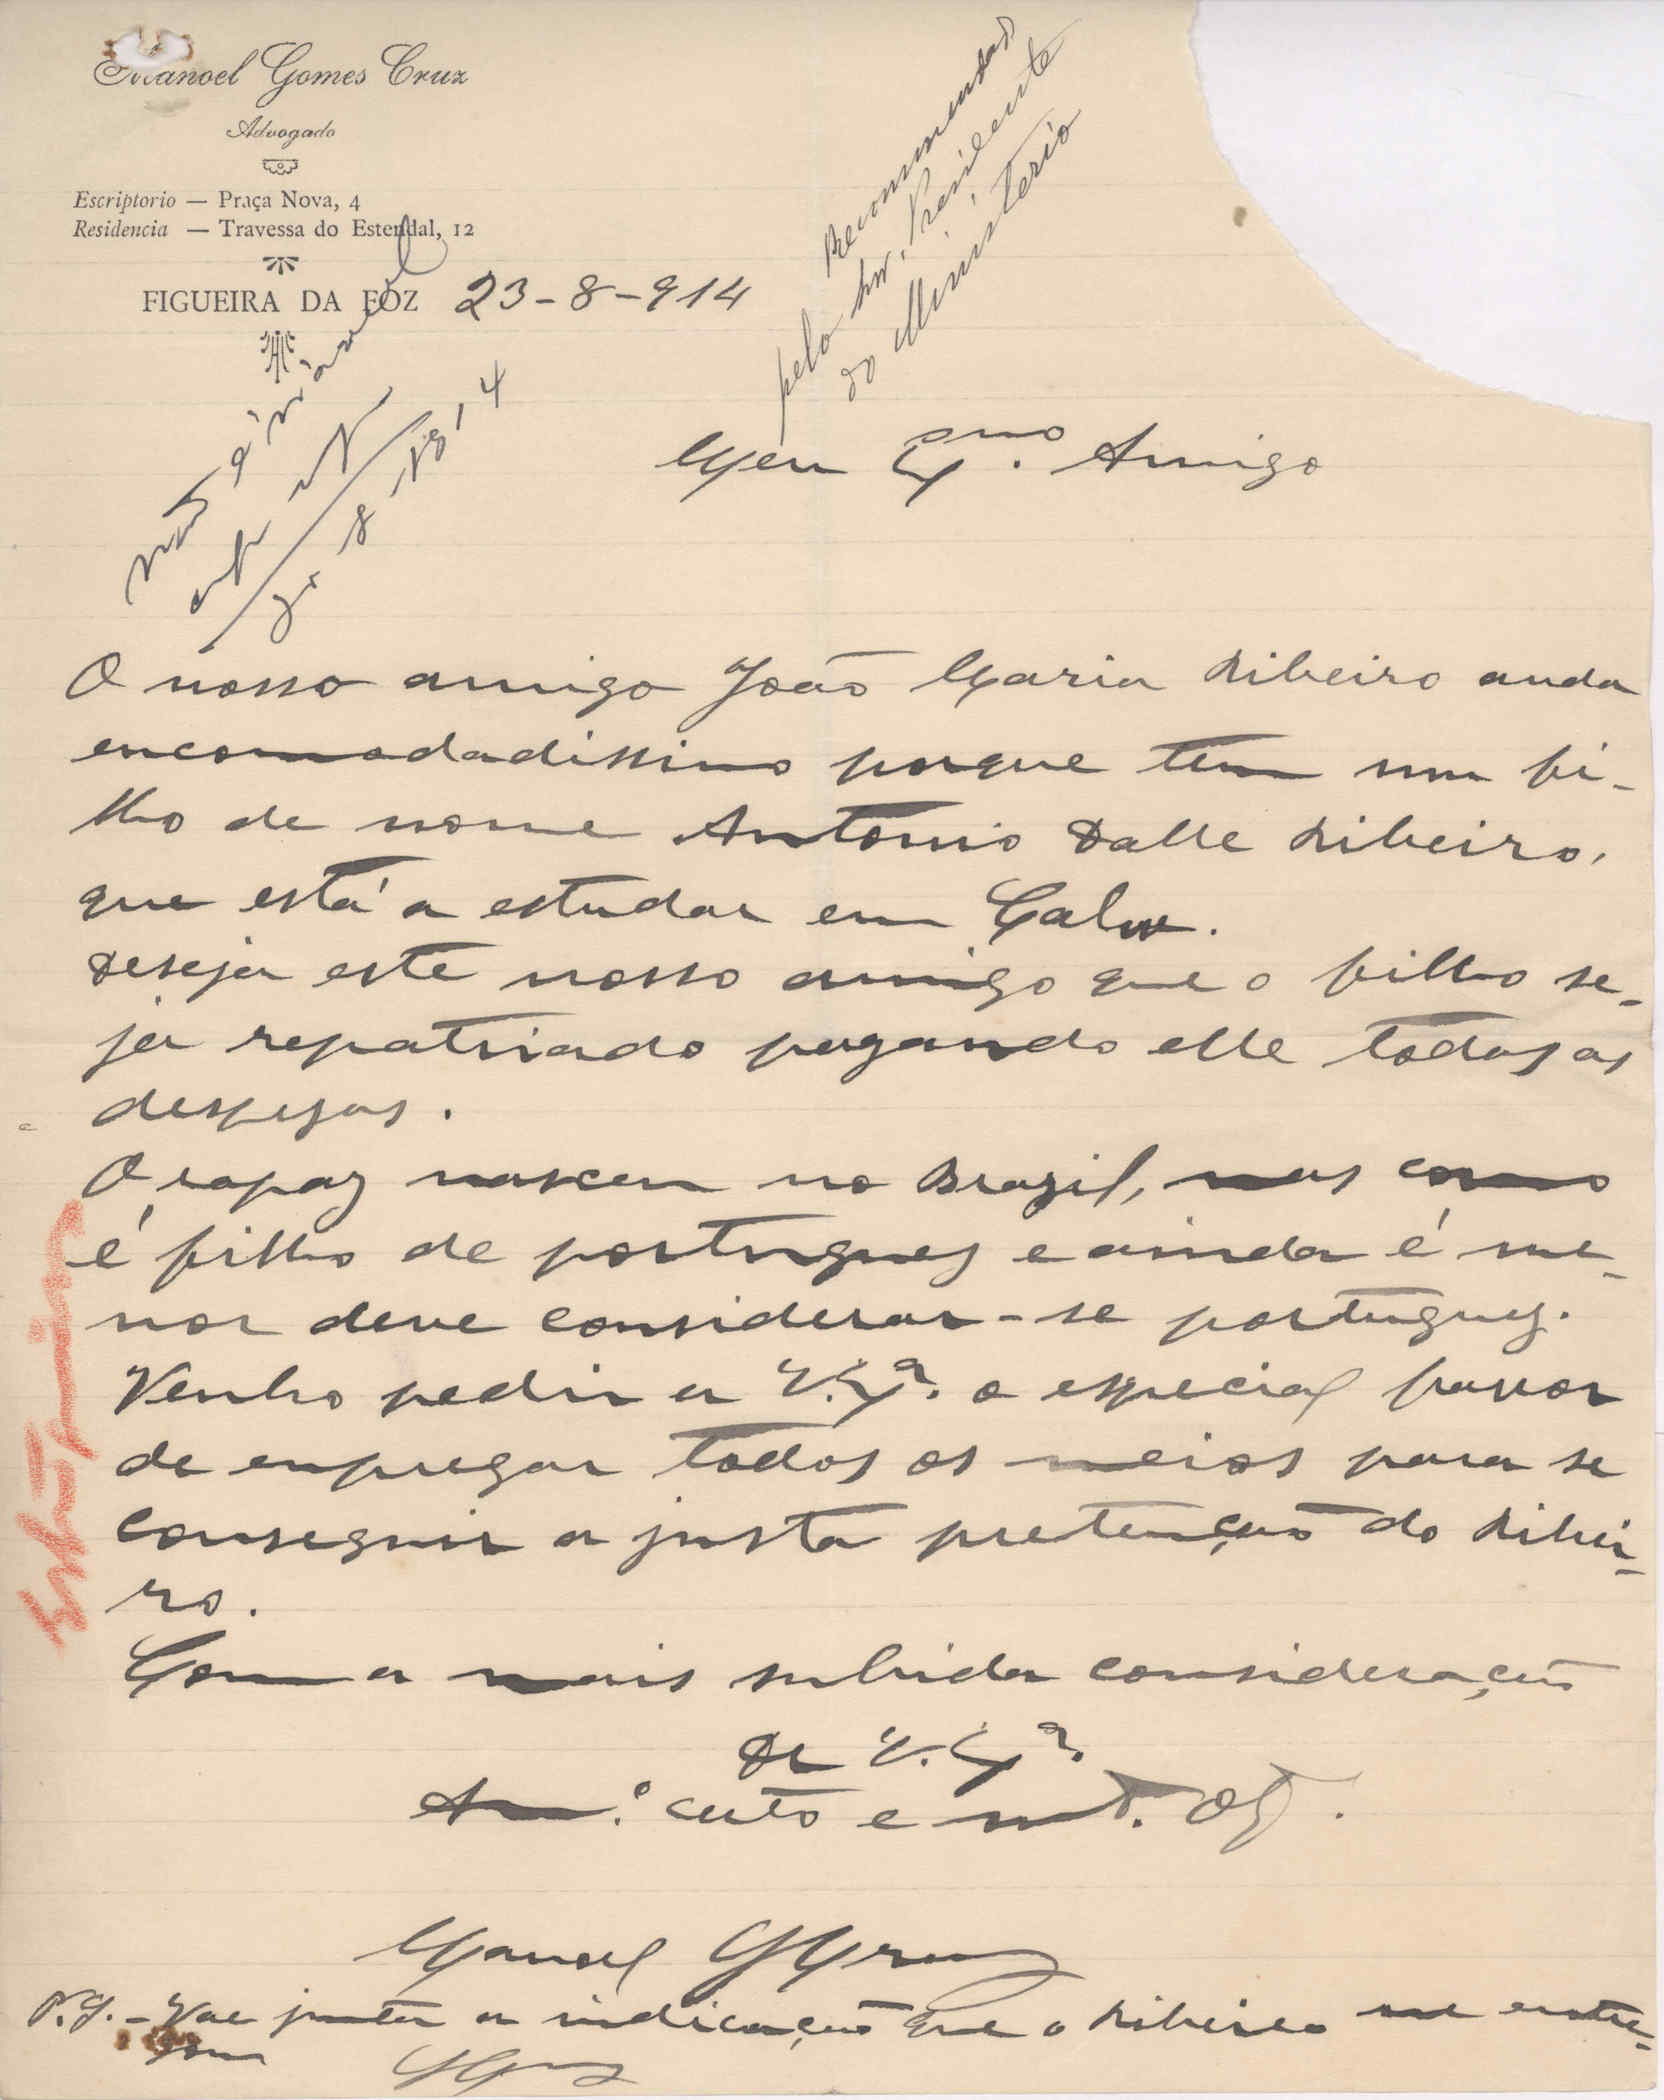 Manoel Gomes Cruz
Advogado
Escriptorio — Praça Nova, 4
Residencia — Travessa do Estendal, 12
FIGUEIRA DA FOZ 23-8-914
Recommendado
pelo Snr. Presidente
do Ministerio
não é viavel
8-1914
Meu Exmo. Amigo
O nosso amigo João Maria Ribeiro anda
encomodadissimo porque tem um fi-
lho de nome Antonio Dalle Ribeiro,
que está a estudar em Calw.
Deseja este nosso amigo que o filho se-
ja repatriado pagando elle todas as
despezas.
O rapaz nasceu no Brazil, mas como
é filho de portuguez e ainda é me-
nor deve considerar-se portuguez.
Venho pedir a V. Exª. o especial favor
de empregar todos os meios para se
conseguir a justa pretenção do Ribei-
ro.
Com a mais subida consideração
De V. Exª.
Am.º certo e mt. obg.
Manoel G Cruz
P.S. - Vae junta a indicação que o Ribeiro me entre-
gou GCruz